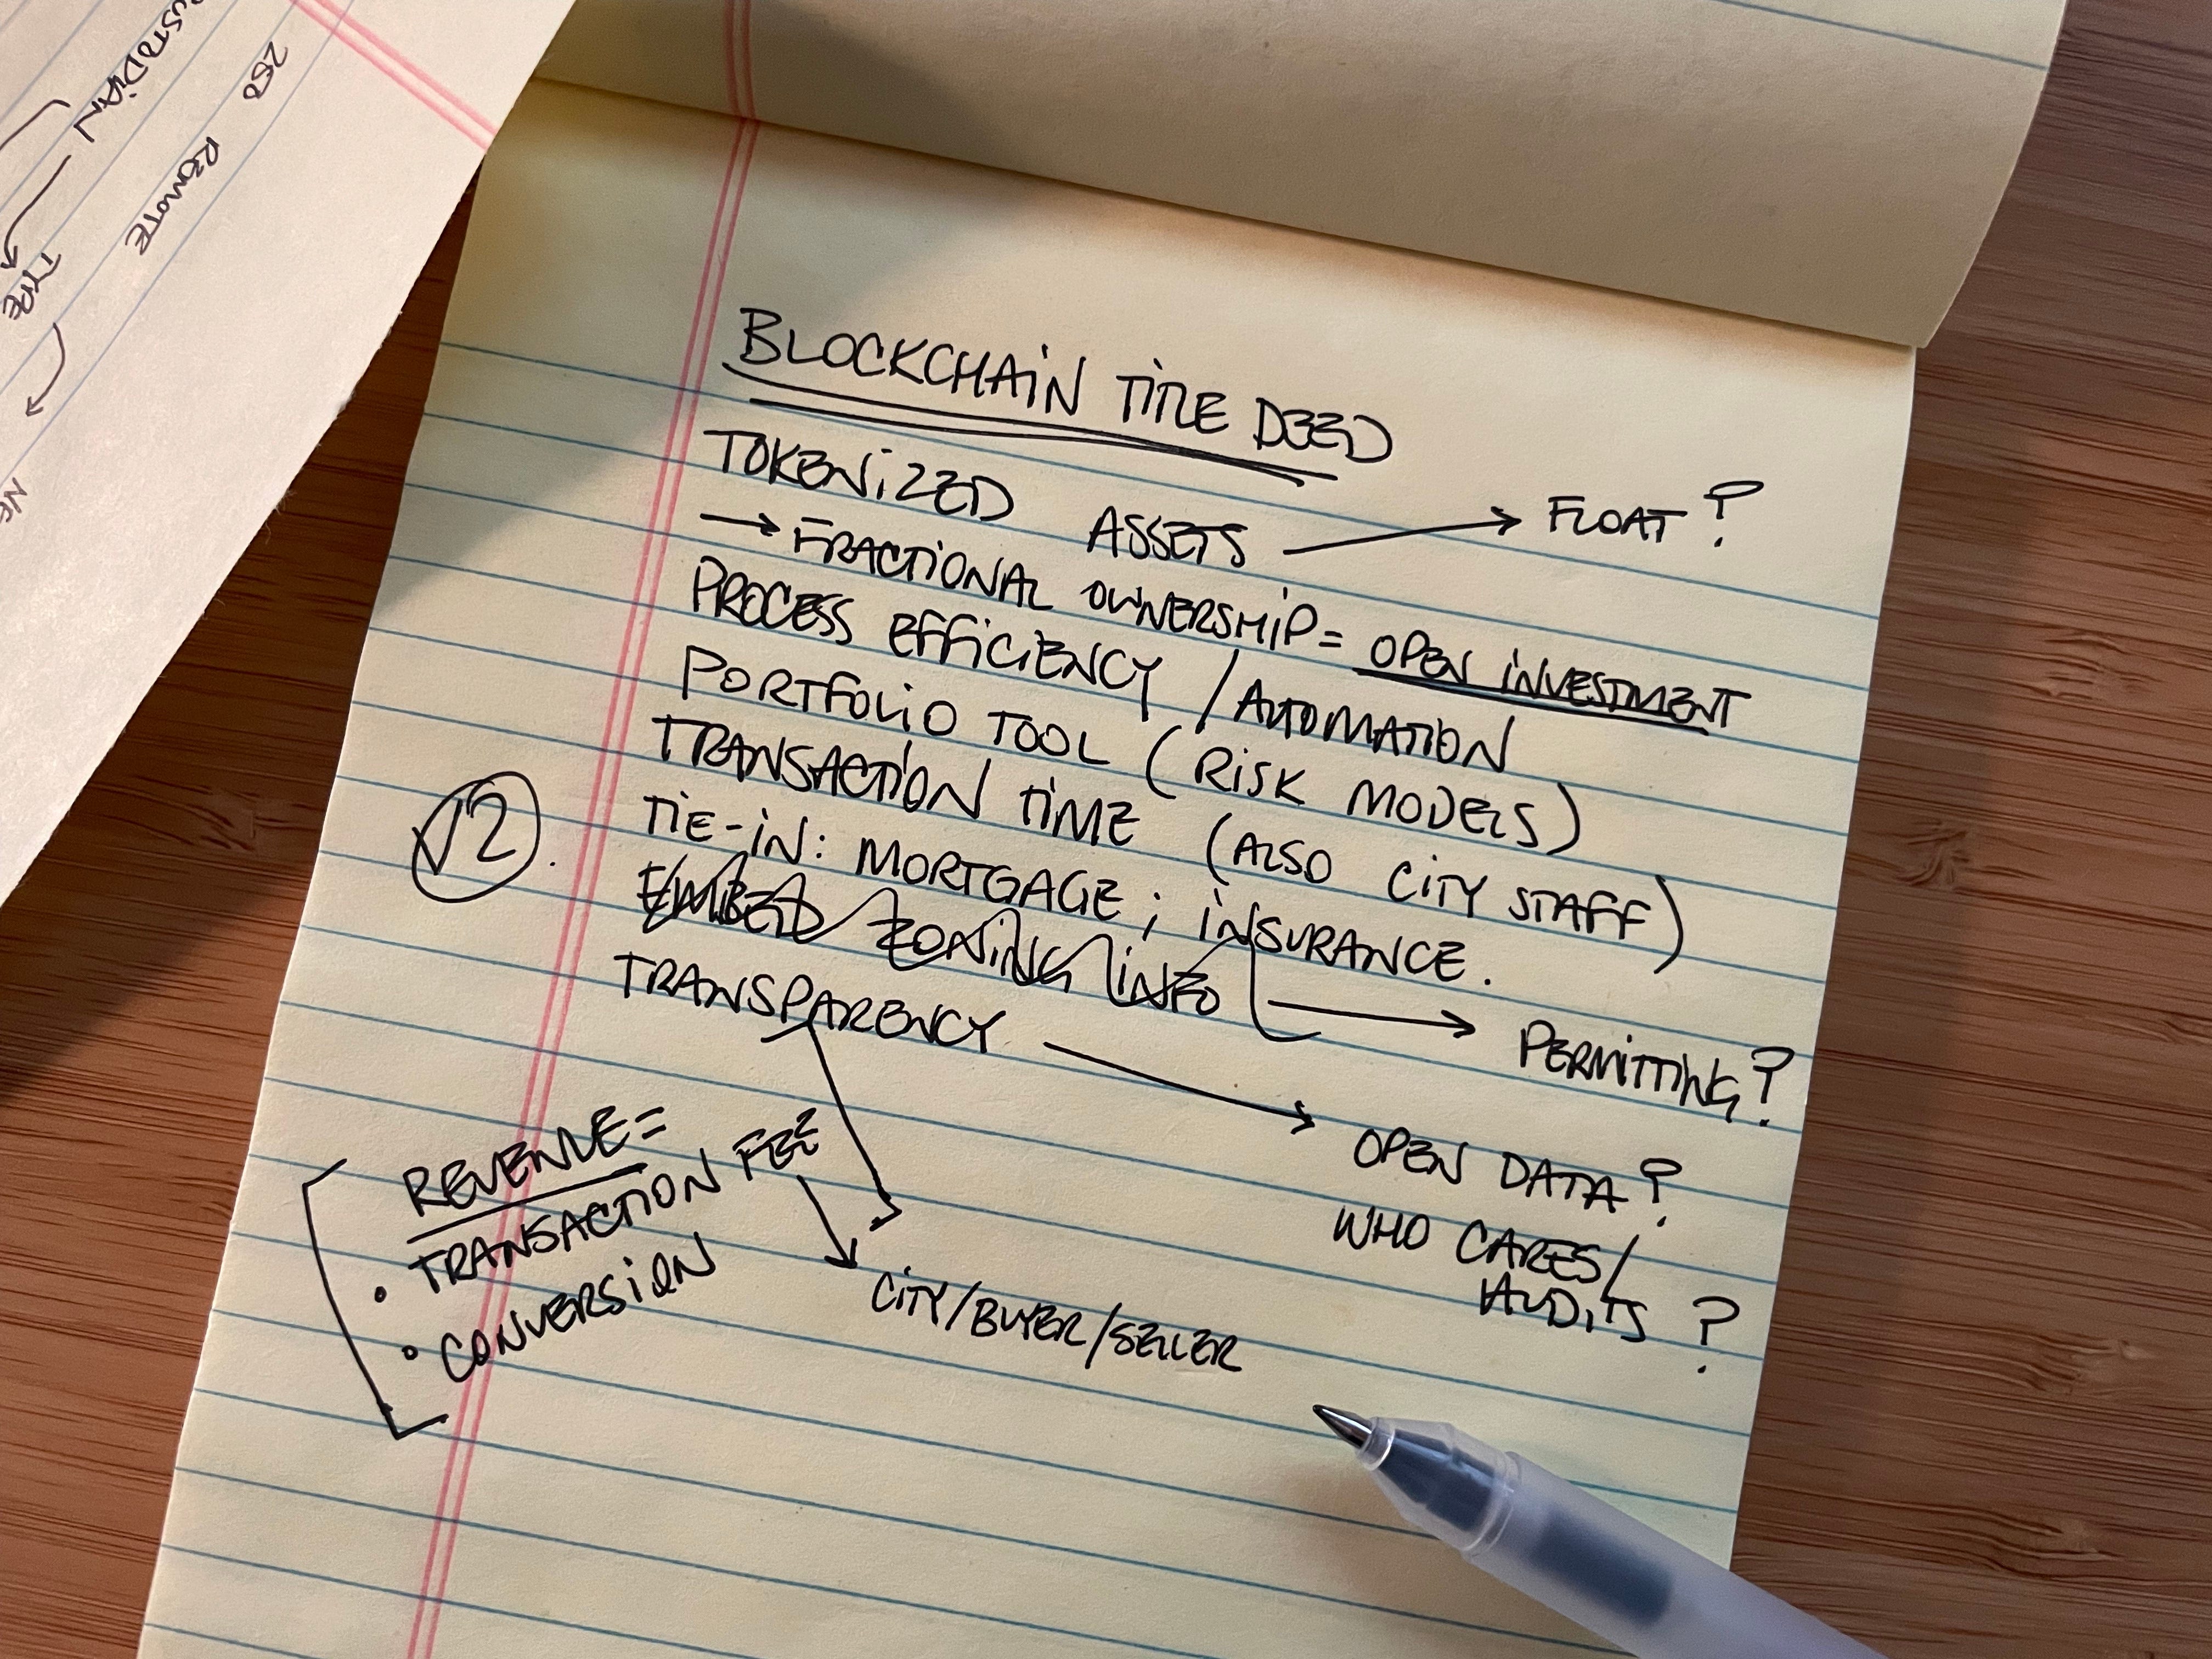 CUSTODIAN
ZBD REMOTE
TYPE
BLOCKCHAIN TITLE DEED
TOKENIZED ASSETS → FLOAT?
→ FRACTIONAL OWNERSHIP = OPEN INVESTMENT
PROCESS EFFICIENCY / AUTOMATION
PORTFOLIO TOOL (RISK MODELS)
TRANSACTION TIME (ALSO CITY STAFF)
V2. TIE-IN: MORTGAGE; INSURANCE.
EMBED ZONING INFO → PERMITTING?
TRANSPARENCY → OPEN DATA?
WHO CARES/
AUDITS?
REVENUE=
• TRANSACTION FEE
• CONVERSION
CITY/BUYER/SELLER